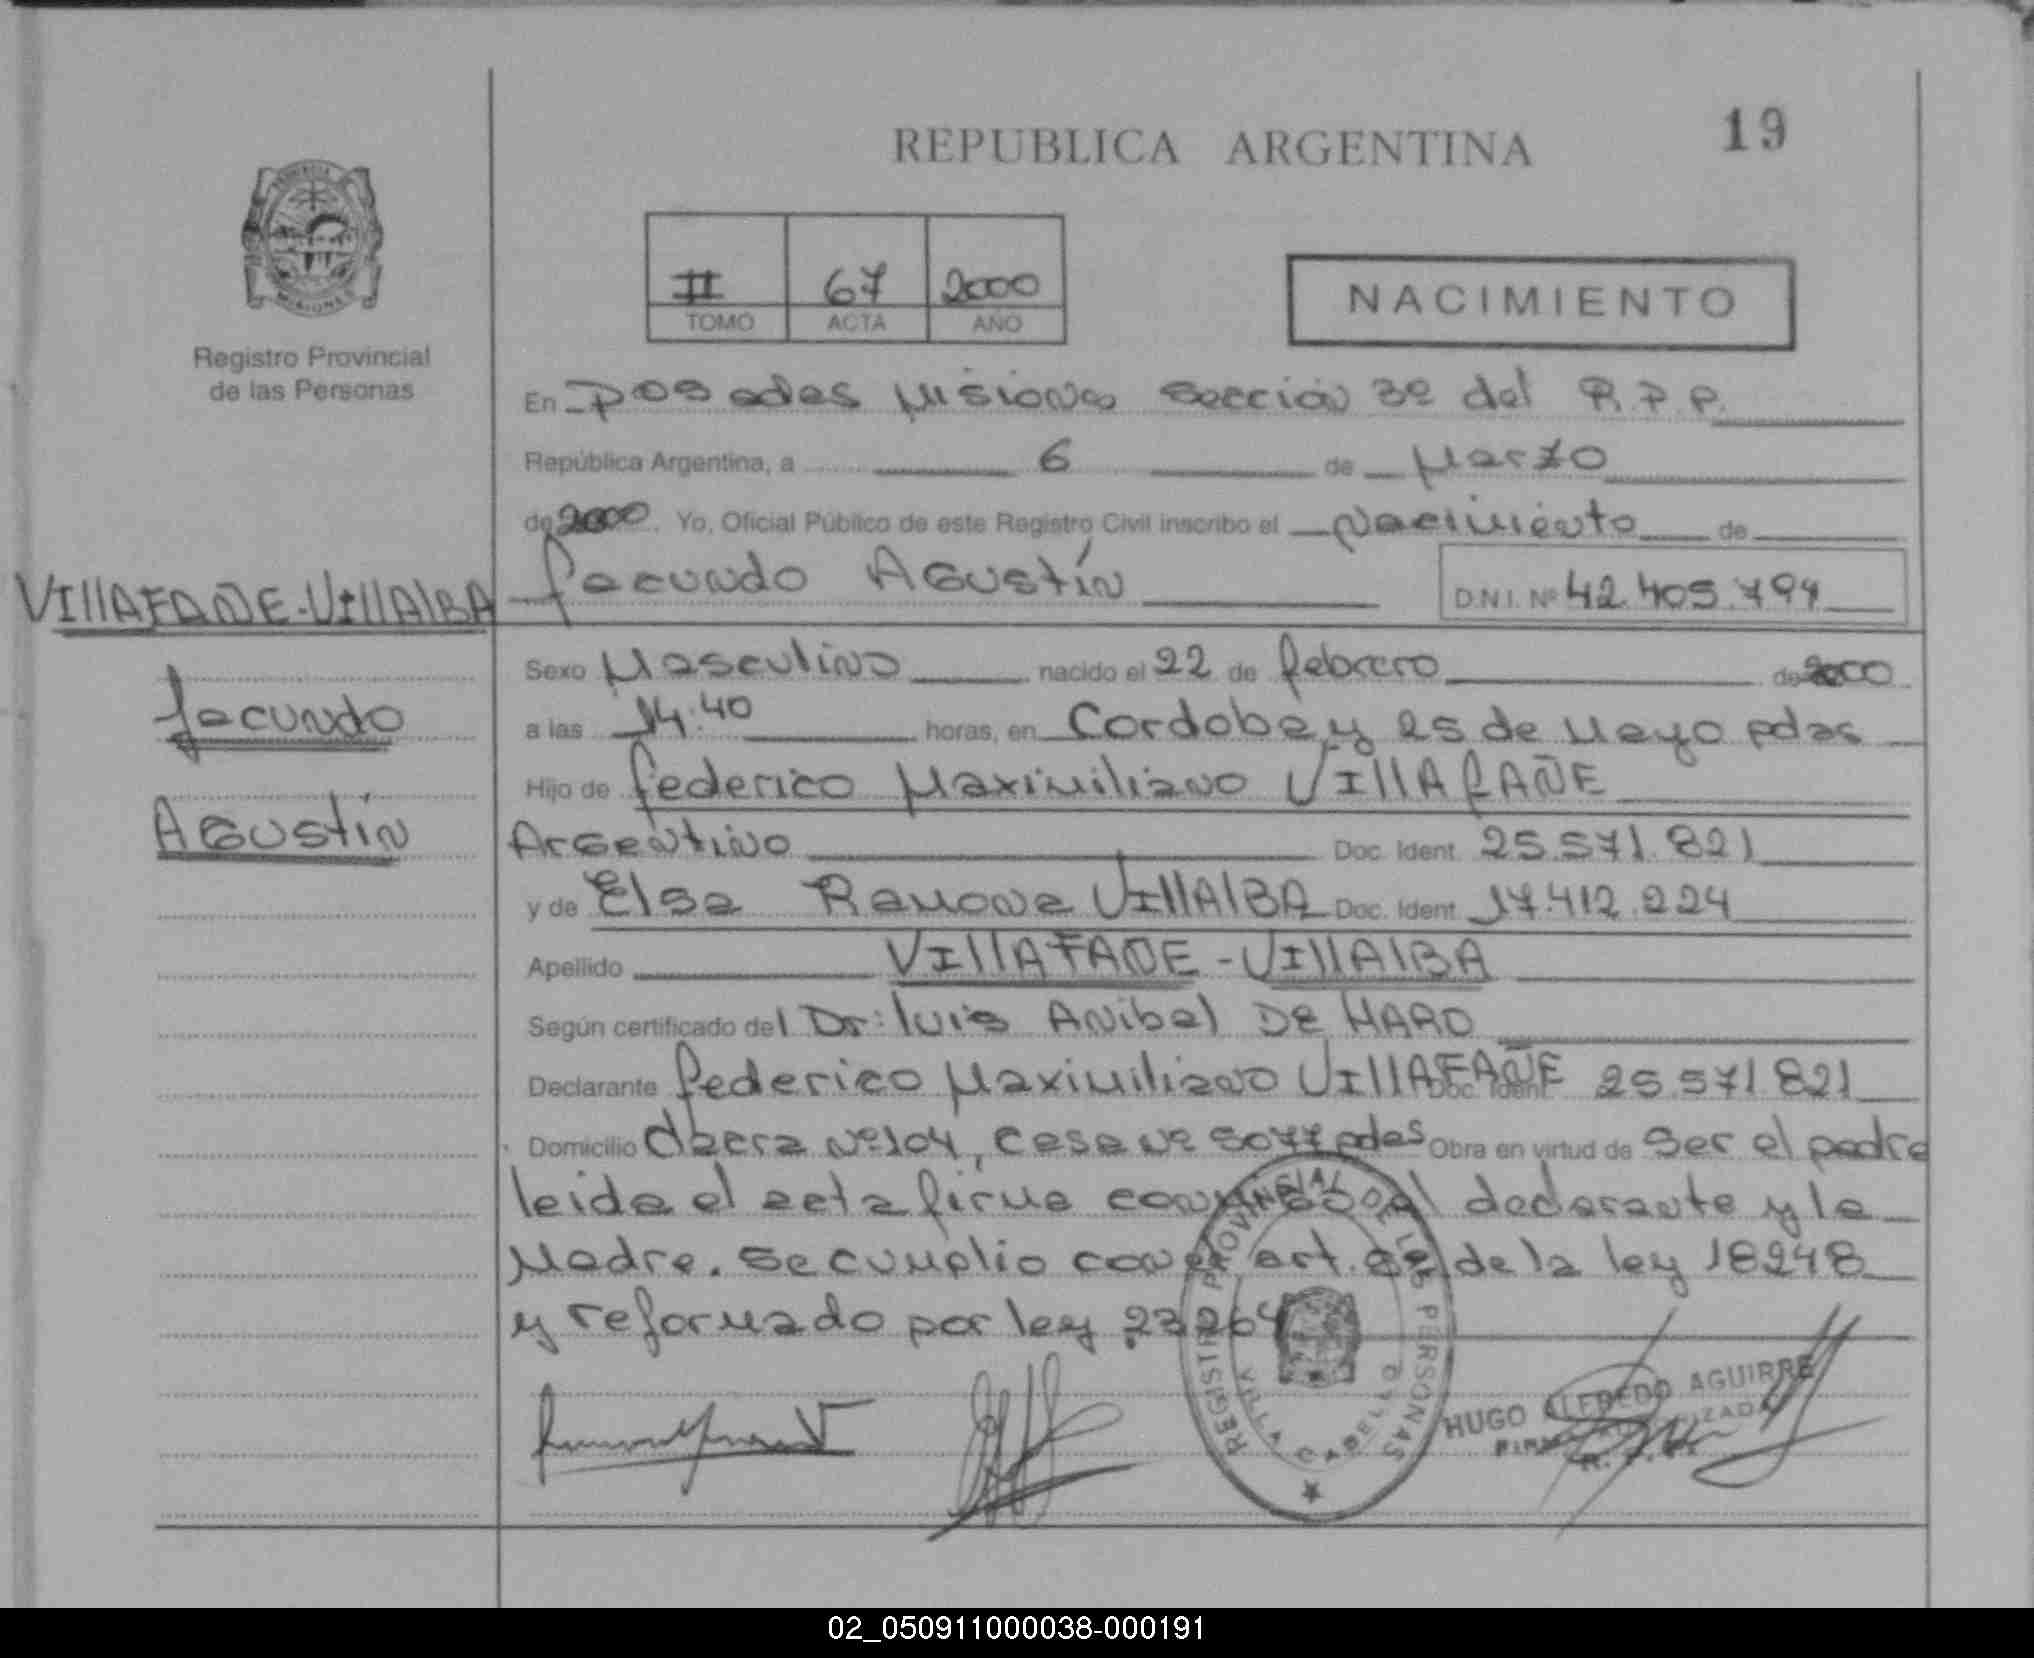 REPUBLICA ARGENTINA
19
II 67 2000
TOMO ACTA AÑO
NACIMIENTO
Registro Provincial
de las Personas
En Posadas Misiones sección 3º del R.P.P.
República Argentina, a 6 de Marzo
de 2000. Yo, Oficial Público de este Registro Civil inscribo el Nacimiento de
VIllAFAÑE-VIllAlBA
facundo Agustín
D.N.I. Nº 42.405.794
Sexo Masculino nacido el 22 de febrero de 2000
facundo
a las 14:40 horas, en Cordoba y 25 de Mayo pdas
Hijo de federico Maximiliano VIllAfAÑE
Agustín
Argentino Doc. Ident. 25.571.821
y de Elsa Ramona VIllAlBA Doc. Ident. 17.412.224
Apellido VIllAFAÑE-VIllAlBA
Según certificado del Dr: luis Anibal DE HARO
Declarante federico Maximiliano VIllAFAÑE Doc. Ident. 25.571.821
Domicilio Nº104, casa Nº 5077 pdas Obra en virtud de Ser el padre
leida el acta firma conmigo el declarante y la
Madre. Se cumplio con el art. de la ley 18248
y reformado por ley 23264
REGISTRO PROVINCIAL DE LAS PERSONAS
HUGO ALFREDO AGUIRRE
02_050911000038-000191